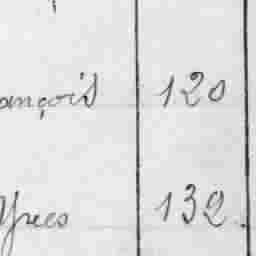 ançois 120
Yves 132.